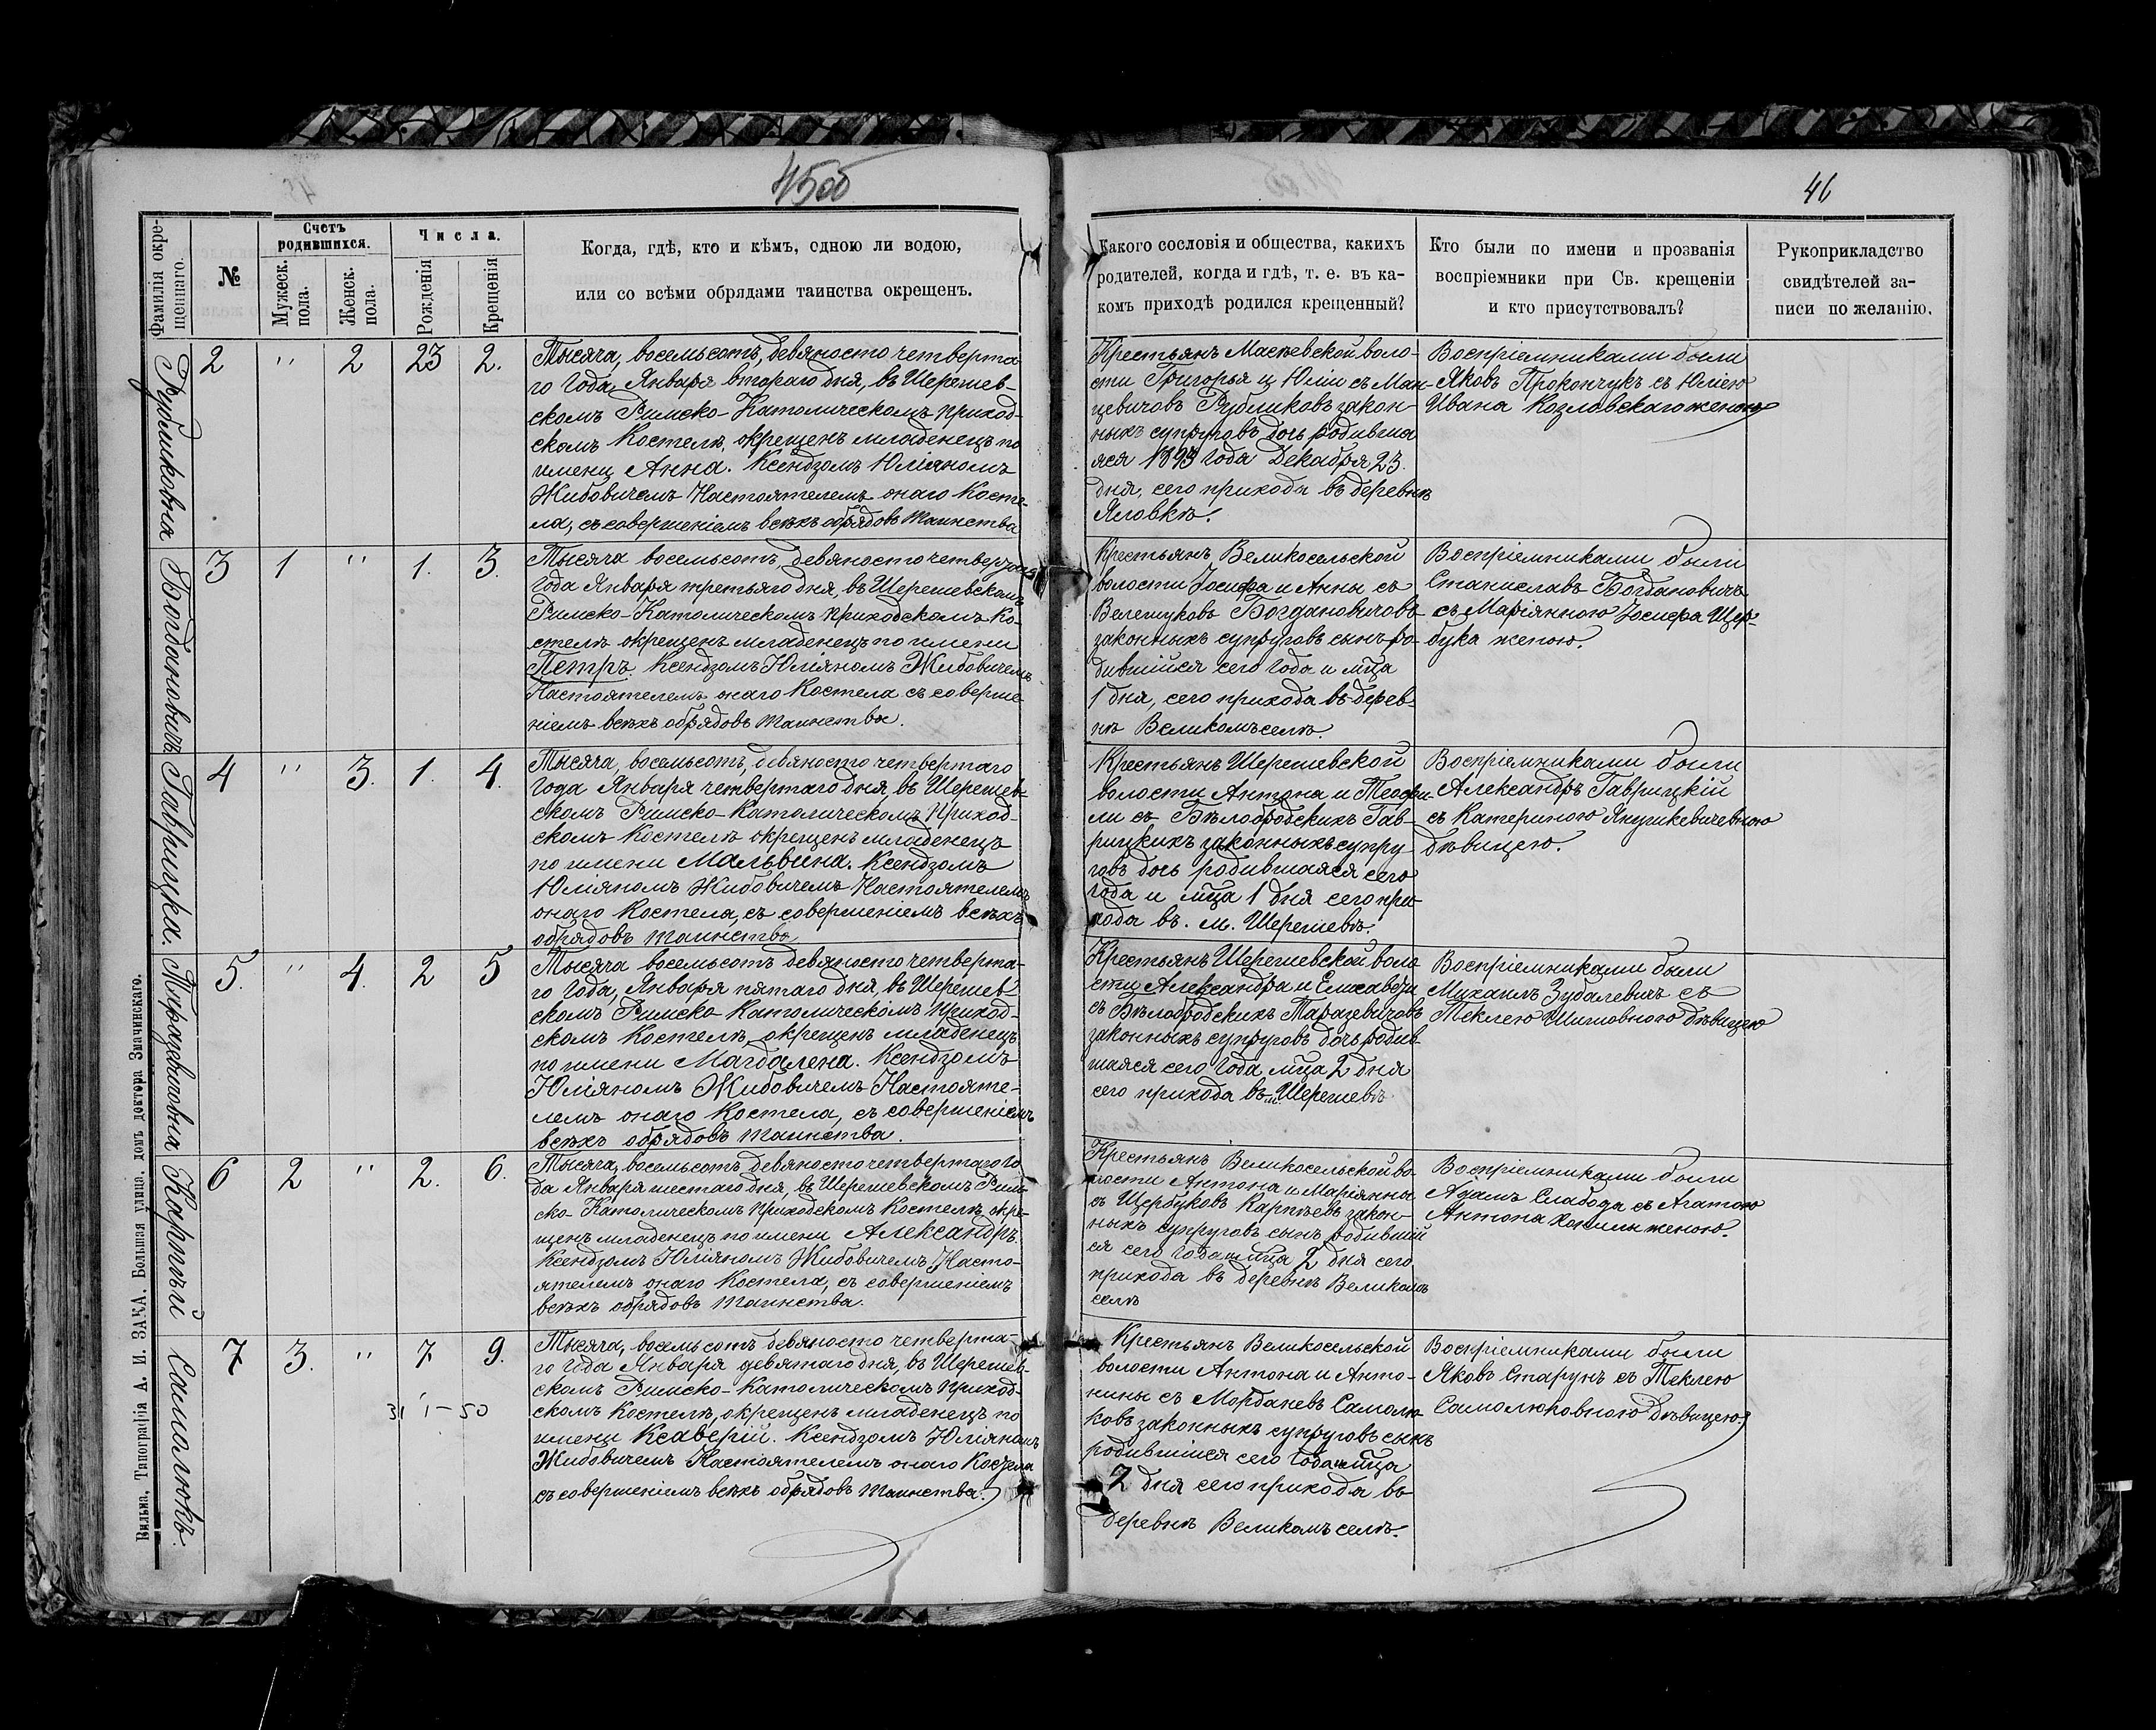 45об
46
Фамилія окре-
щеннаго.
№
Счетъ
родившихся.
Мужеск.
пола.
Женск.
пола.
Числа.
Рожденія
Крещенія
Когда, гдѣ, кто и кѣмъ, одною ли водою,
или со всѣми обрядами таинства окрещенъ.
Какого сословія и общества, какихъ
родителей, когда и гдѣ, т. е. въ ка-
комъ приходѣ родился крещенный?
Кто были по имени и прозванія
воспріемники при Св. крещеніи
и кто присутствовалъ?
Рукоприкладство
свидѣтелей за-
писи по желанію.
2 " 2 23 2.
Тысяча, восемьсотъ, девяносто четверта-
го Года, Января втораго дня, въ Шерешев-
скомъ Римско-Католическомъ приход-
скомъ Костелѣ, окрещенъ младенецъ по
имени Анна. Ксендзомъ Юліяномъ
Жибовичемъ Настоятелемъ онаго Косте-
ла, съ совершеніемъ всѣхъ обрядовъ таинства
Крестьянъ Масевской воло-
сти Григорья и Юліи съ Ман-
цевичовъ Рубликовъ закон-
ныхъ супруговъ дочь родивша
яся 1893 года Декабря 23.
дня, сего прихода въ деревнѣ
Яловкѣ.
Воспріемниками были
Яковъ Прокончукъ съ Юліею
Ивана Козловскаго женою
Богдановичъ
3 1 " 1. 3.
Тысяча восемьсотъ, девяносто четвертаго
Года Января третьяго дня, въ Шерешевскомъ
Римско-Католическомъ приходскомъ Ко-
стелѣ окрещенъ младенецъ по имени
Петръ. Ксендзомъ Юліяномъ Жибовичемъ
Настоятелемъ онаго Костела съ соверше
ніемъ всѣхъ обрядовъ таинства.
Крестьянъ Великосельской
волости Іосифа и Анны съ
Велешуковъ Богдановичовъ
законныхъ супруговъ сынъ ро-
дившійся сего года и мѣца
1 дня, сего прихода въ дерев-
нѣ Великомъселѣ.
Воспріемниками были
Станиславъ Богдановичъ
съ Маріянною Іосифа Щер-
бука женою.
Гаврицка.
4 " 3. 1. 4.
Тысяча, восемьсотъ, девяносто четвертаго
Года Января четвертаго дня, въ Шерешев-
скомъ Римско-Католическомъ Приход-
скомъ Костелѣ окрещенъ младенецъ
по имени Мальвина. Ксендзомъ
Юліяномъ Жибовичемъ Настоятелемъ
онаго Костела, съ совершеніемъ всѣхъ
обрядовъ таинства
Крестьянъ Шерешевской
волости Антона и Теофи-
ли съ Бѣлобродскихъ Гав-
рицкихъ законныхъ супру-
говъ дочь родившаяся сего
года и мѣца 1 дня сего при-
хода въ. м. Шерешевѣ.
Воспріемниками были
Александръ Гаврицкій
съ Катериною Янушкевичевною
дѣвицею.
Таразевичовна
5. " 4. 2 5
Тысяча восемьсотъ девяносто четверта-
го Года, Января пятаго дня, въ Шерешев-
скомъ Римско Католическомъ Приход-
скомъ Костелѣ, окрещенъ младенецъ
по имени Магдалена. Ксендзомъ
Юліяномъ Жибовичемъ Настояте-
лемъ онаго Костела, съ совершеніемъ
всѣхъ обрядовъ таинства.
Крестьянъ Шерешевской воло
сти Александра и Елисаветы
съ Бѣлобродскихъ Таразевичовъ
законныхъ супруговъ дочь родив
шаяся сего Года мѣца 2 дня
сего прихода въ м. Шерешевѣ
Воспріемниками были
Михаилъ Зубалевичъ съ
Теклею Шитовною дѣвицею
Карпѣй
6 2 " 2. 6.
Тысяча, восемьсотъ, девяносто четвертаго Го
да Января шестаго дня, въ Шерешевскомъ Рим-
ско-Католическомъ приходскомъ Костелѣ, окре-
щенъ младенецъ по имени Александръ.
Ксендзомъ Юліяномъ Жибовичемъ, Насто-
ятелемъ онаго Костела, съ совершеніемъ
всѣхъ обрядовъ таинства.
Крестьянъ Великосельской во-
лости Антона и Маріянны
съ Щербуковъ Карпѣевъ закон-
ныхъ супруговъ сынъ родивший
ся сего года и мѣца 2 дня сего
прихода въ деревнѣ Великомъ
селѣ
Воспріемниками были
Адамъ Слабода съ Агатою
Антона женою.
Самолюкъ.
7 3. " 7 9.
31 1-50
Тысяча, восемьсотъ девяносто четверта-
го Года Января девятаго дня, въ Шерешев-
скомъ Римско-Католическомъ приход-
скомъ Костелѣ, окрещенъ младенецъ по
имени Ксаверій. Ксендзомъ Юліяномъ
Жибовичемъ Настоятелемъ онаго Костела
съ совершеніемъ всѣхъ обрядовъ таинства.
Крестьянъ Великосельской
волости Антона и Анто-
нины съ Морданевъ Самолю
ковъ законныхъ супруговъ сынъ
родившійся сего Года и мѣца
7 дня сего прихода въ
деревнѣ Великомъ селѣ.
Воспріемниками были
Яковъ Старунъ съ Теклею
Самолюковною дѣвицею.
Вильна, Типографія А. И. ЗАКА. Большая улица, домъ доктора Змачинскаго.